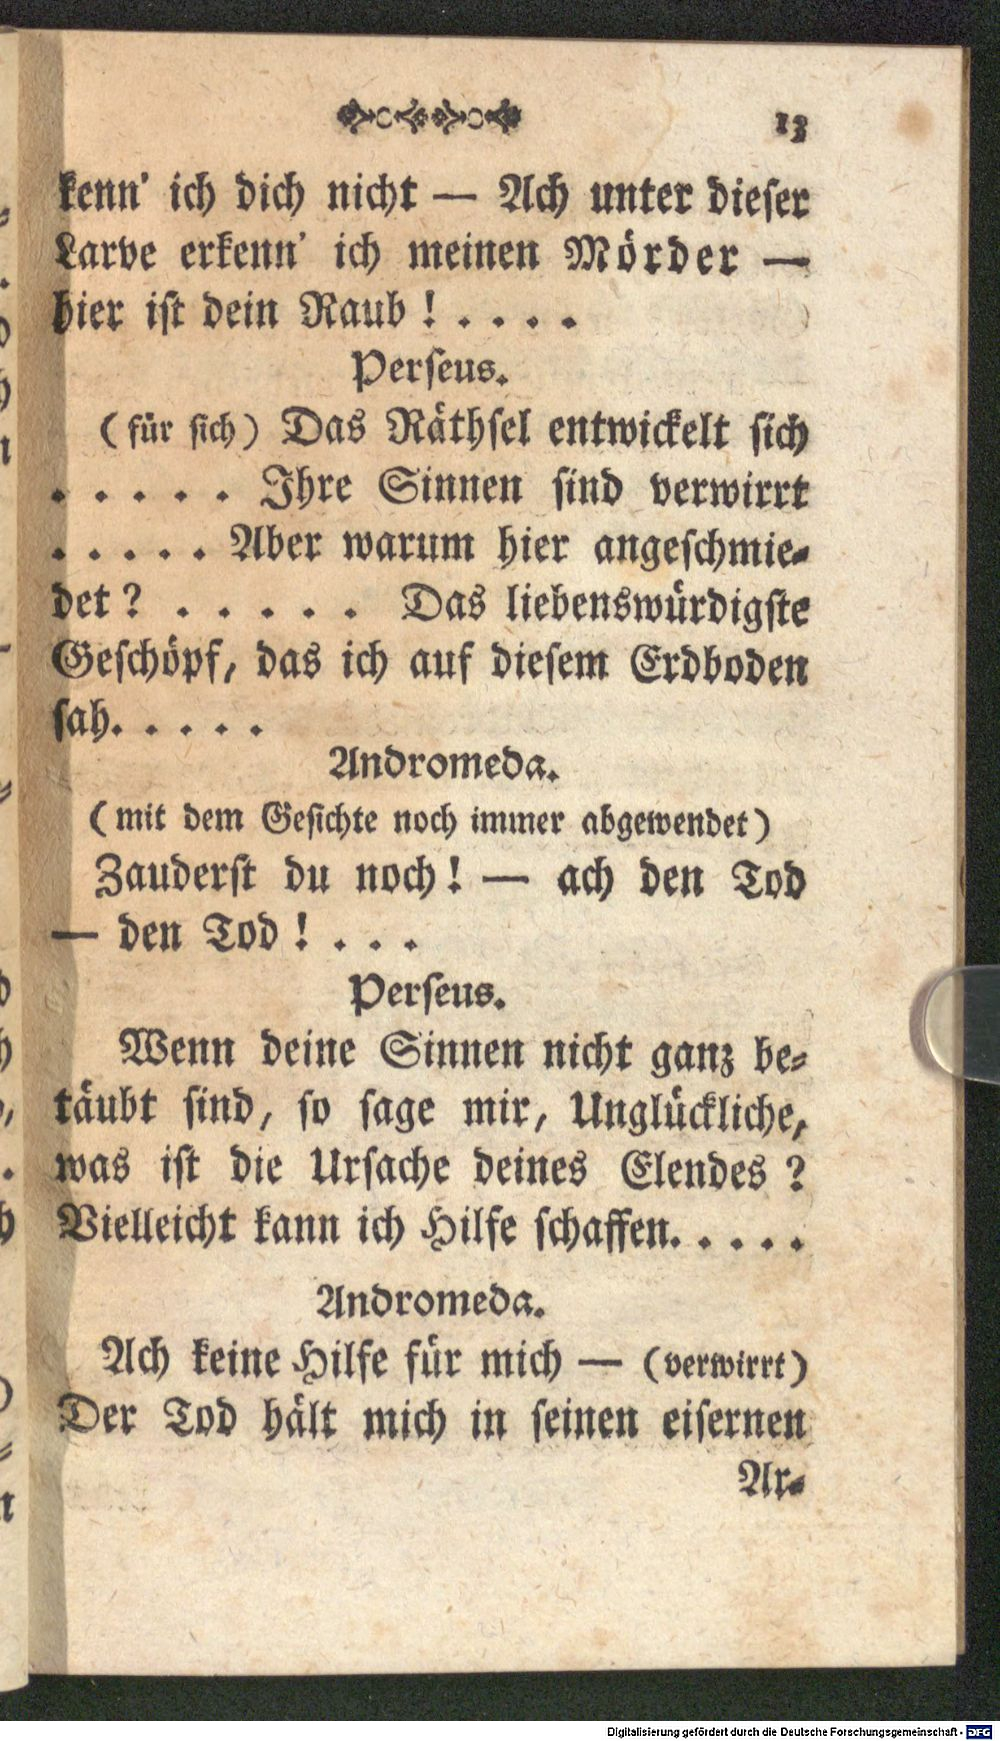 13
kenn' ich dich nicht — Ach unter dieser
Larve erkenn' ich meinen Mörder —
hier ist dein Raub! . . . .
Perseus.
(für sich) Das Räthsel entwickelt sich
. . . . . Ihre Sinnen sind verwirrt
. . . . . Aber warum hier angeschmie-
det? . . . . . Das liebenswürdigste
Geschöpf, das ich auf diesem Erdboden
sah. . . . .
Andromeda.
(mit dem Gesichte noch immer abgewendet)
Zauderst du noch! — ach den Tod
— den Tod! . . .
Perseus.
Wenn deine Sinnen nicht ganz be-
täubt sind, so sage mir, Unglückliche,
was ist die Ursache deines Elendes?
Vielleicht kann ich Hilfe schaffen. . . . .
Andromeda.
Ach keine Hilfe für mich — (verwirrt)
Der Tod hält mich in seinen eisernen
Ar-
Digitalisierung gefördert durch die Deutsche Forschungsgemeinschaft - DFG